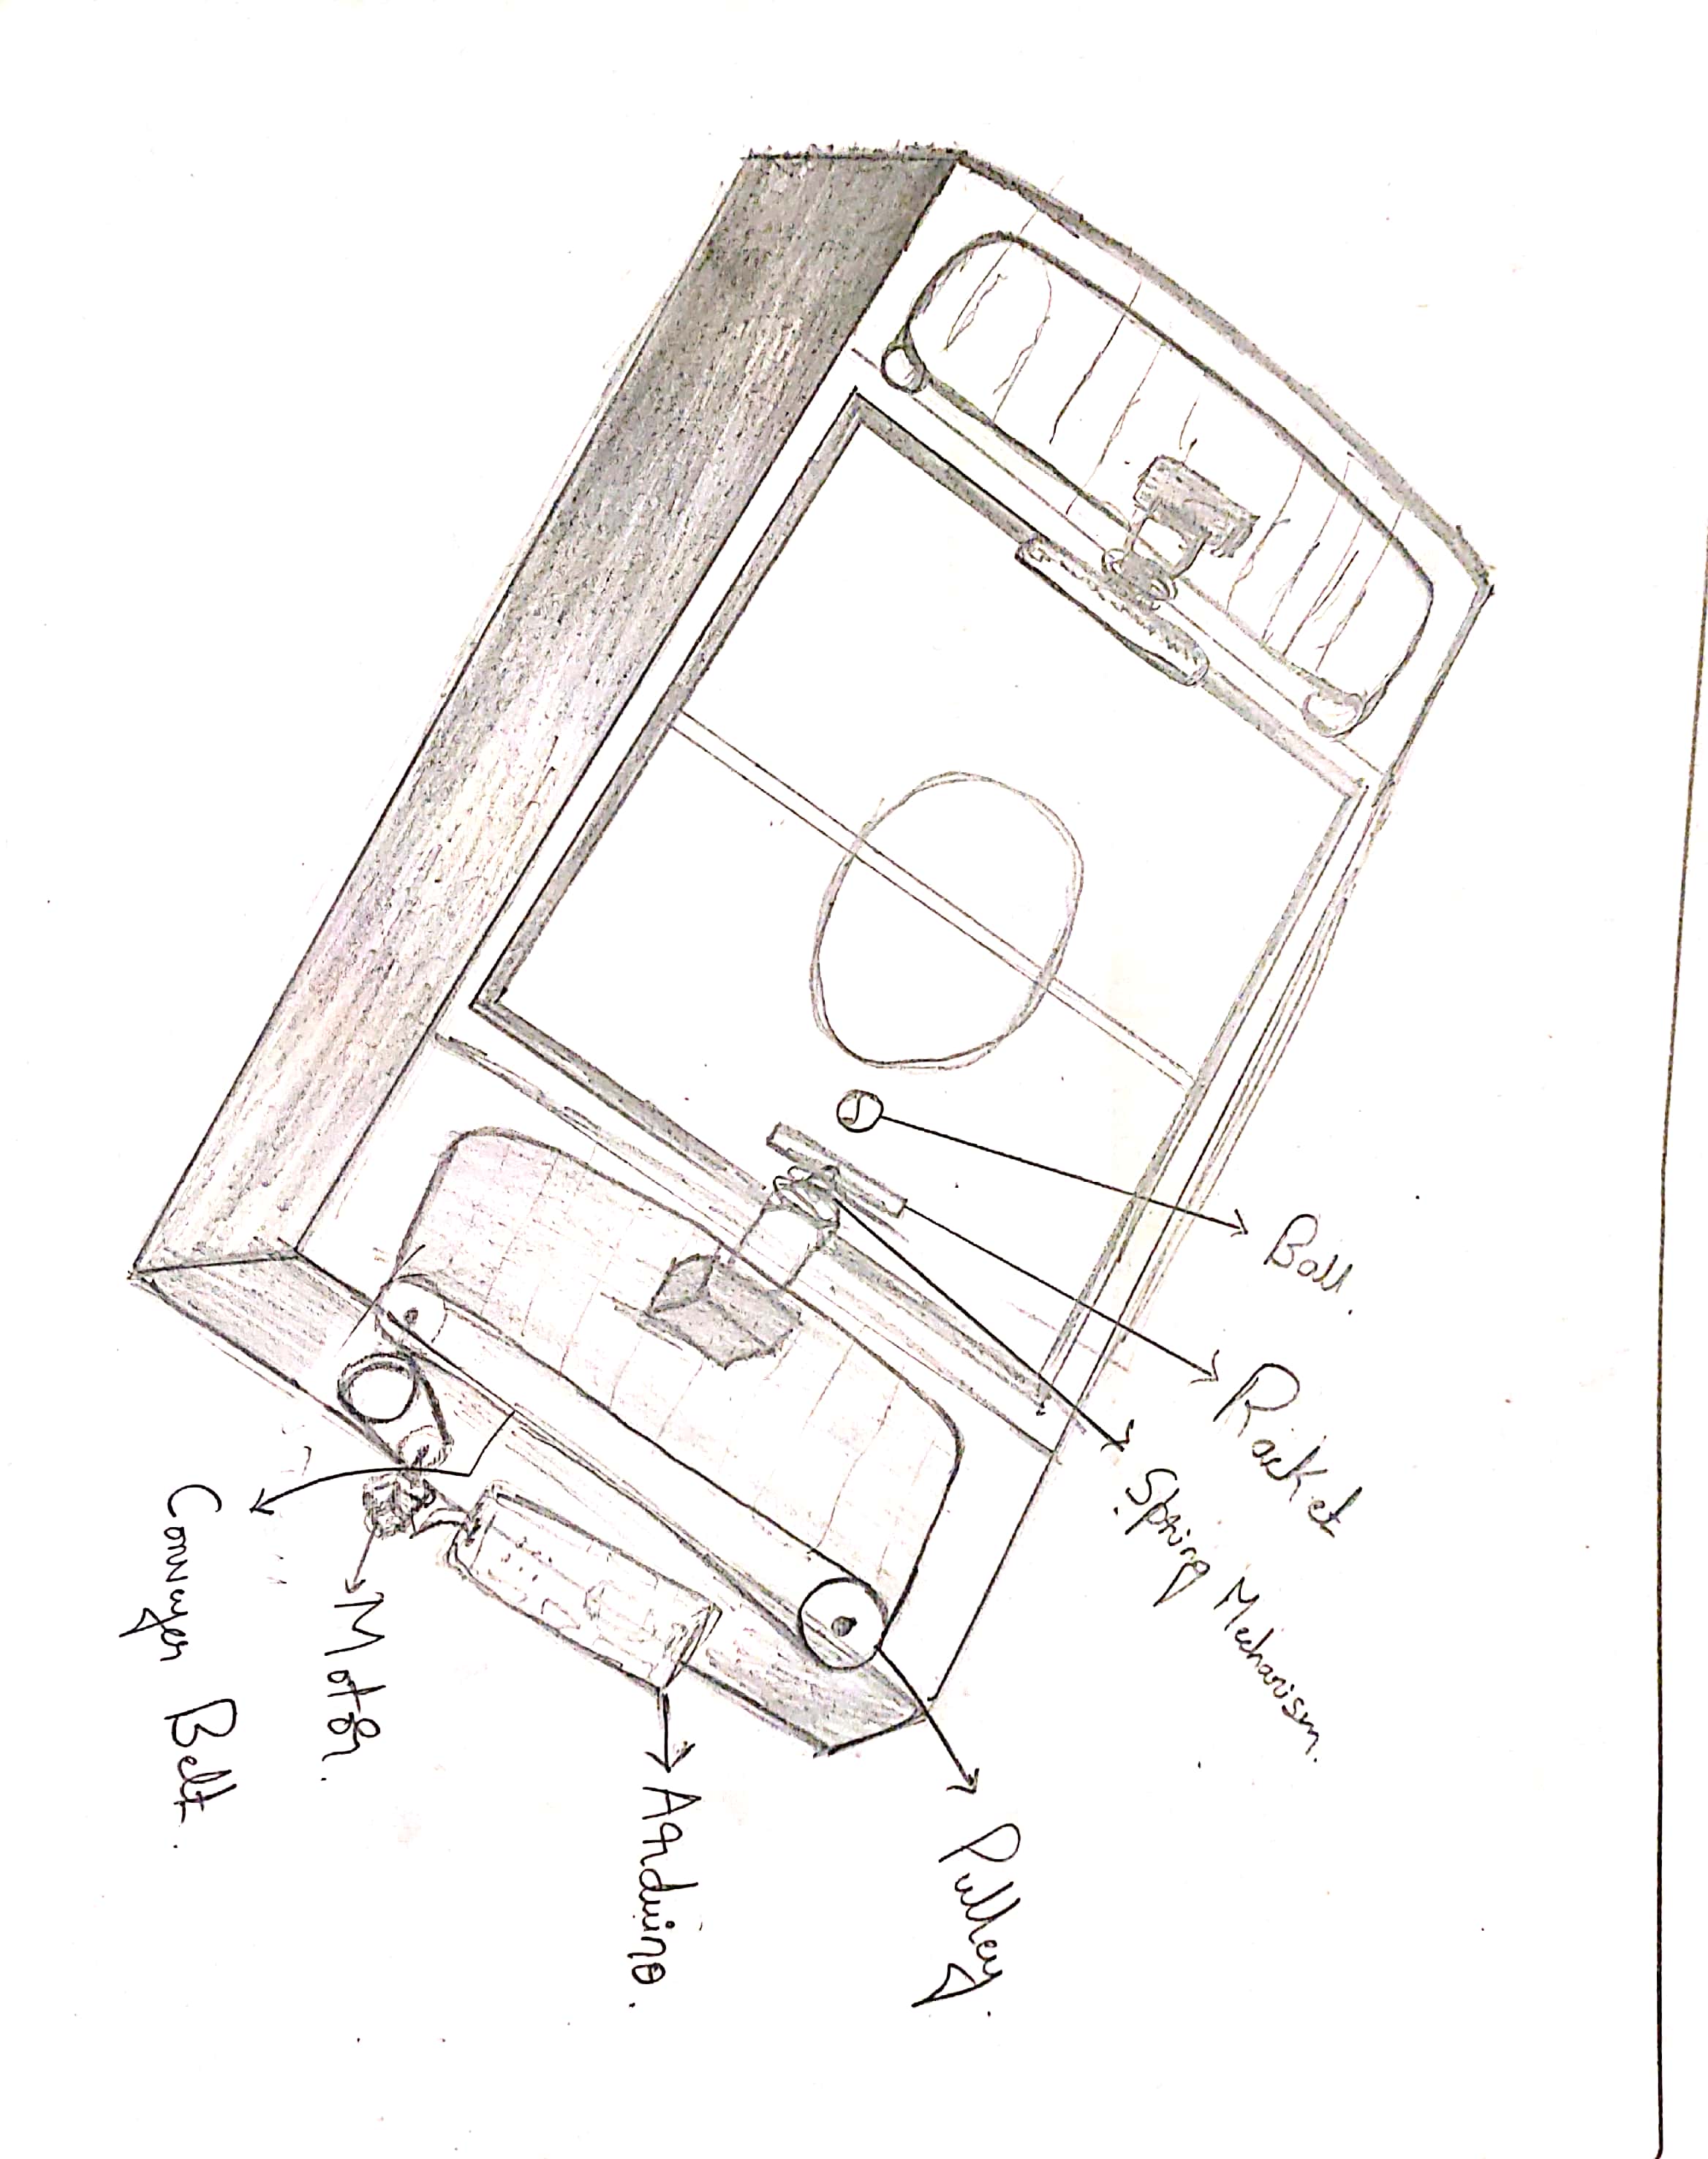 Ball.
Racket
Spring Mechanism.
Pulley.
Arduino.
Motor.
Conveyer Belt.